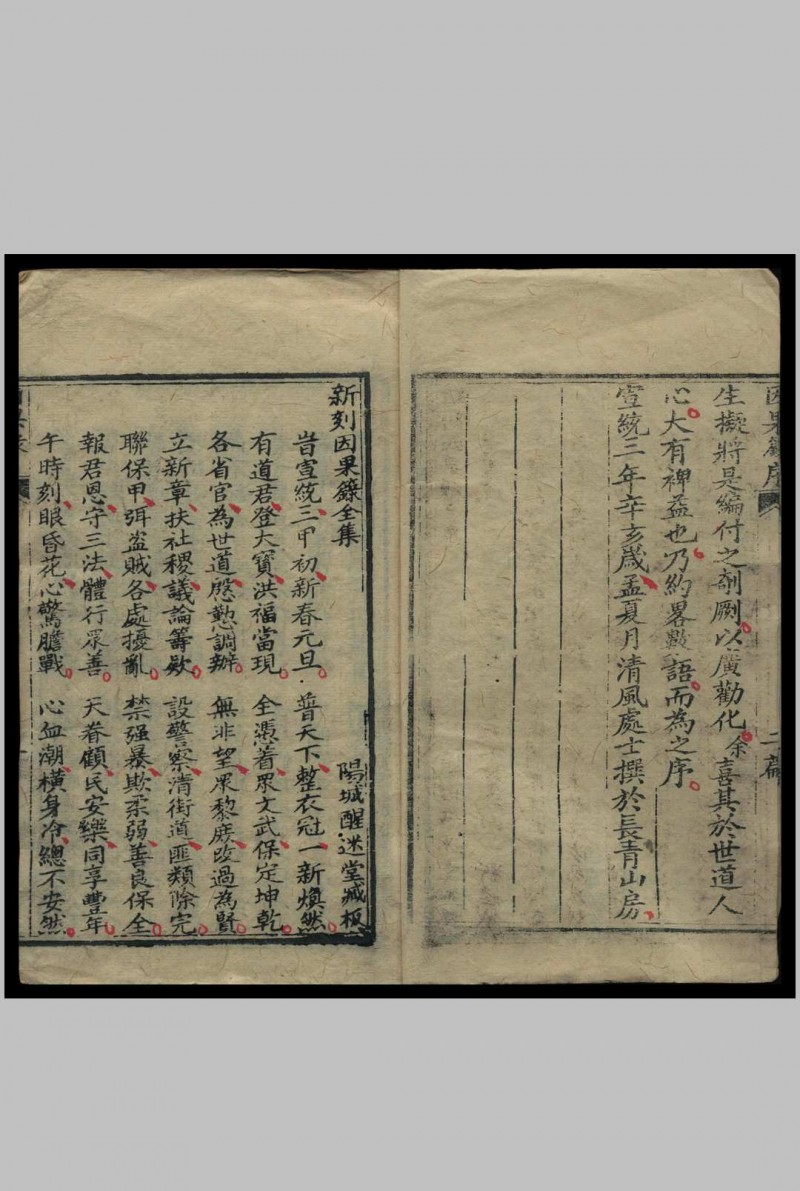 因果籙序
二篇
生擬將是編付之剞劂以廣勸化余喜其於世道人
心大有裨益也乃約畧數語而為之序
宣統三年辛亥歲孟夏月清風處士撰於長青山房
新刻因果籙全集
陽城醒迷堂藏板
昔宣統三甲初新春元旦普天下整衣冠一新煥然
有道君登大寶洪福當現全憑着眾文武保定坤乾
各省官為世道慇懃調辦無非望眾黎庶改過為賢
立新章扶社稷議論籌欵設警察清街道匪類除完
聯保甲弭盗賊各處擾亂禁强暴欺柔弱善良保全
報君恩守三法體行眾善天眷顧民安樂同享豐年
午時刻眼昏花心驚膽戰心血潮橫身冷總不安然